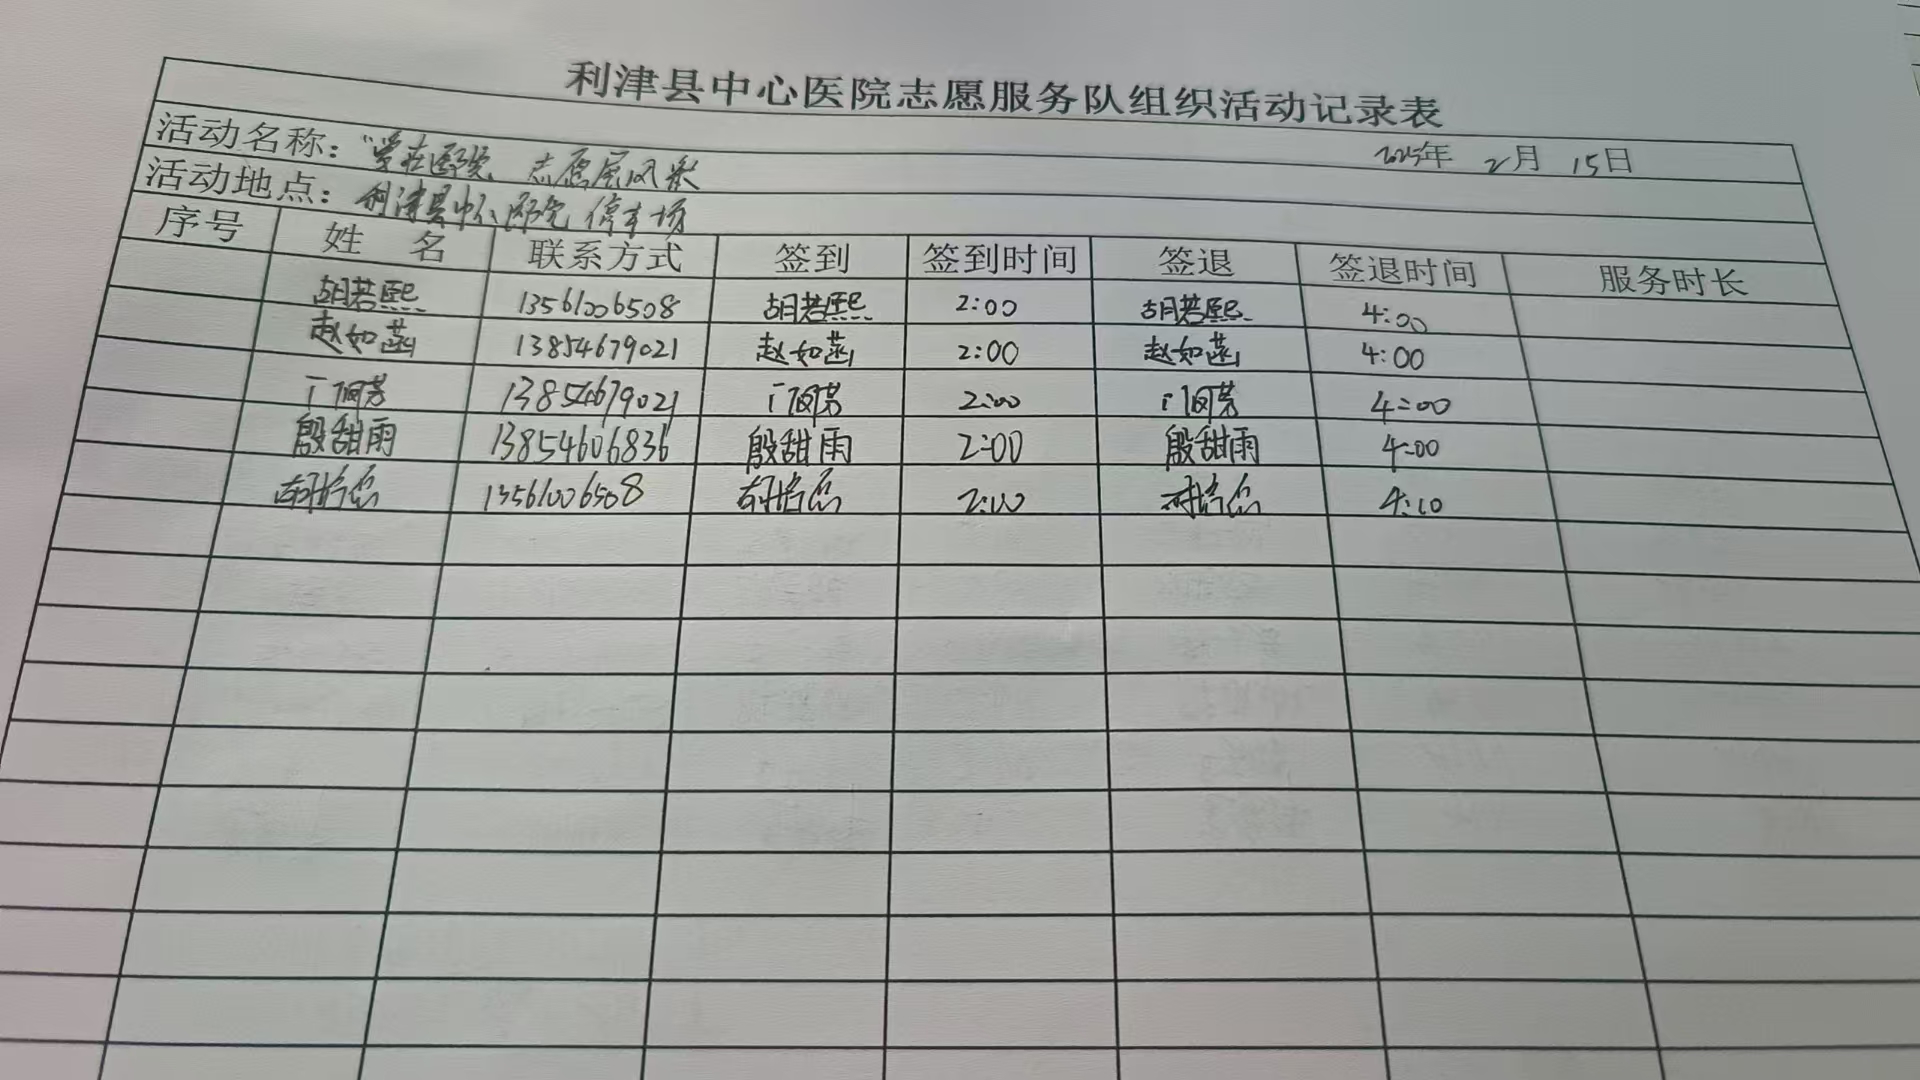 利津县中心医院志愿服务队组织活动记录表
2025年 2月 15日
活动名称：“爱在医院 志愿展风采
活动地点：利津县中心医院停车场
序号 姓 名 联系方式 签到 签到时间 签退 签退时间 服务时长
胡若熙 13561006508 胡若熙 2:00 胡若熙 4:00
赵如菡 13854679021 赵如菡 2:00 赵如菡 4:00
13854679021 2:00 4:00
殷甜雨 13854606836 殷甜雨 2:00 殷甜雨 4:00
13561006508 2:00 4:10